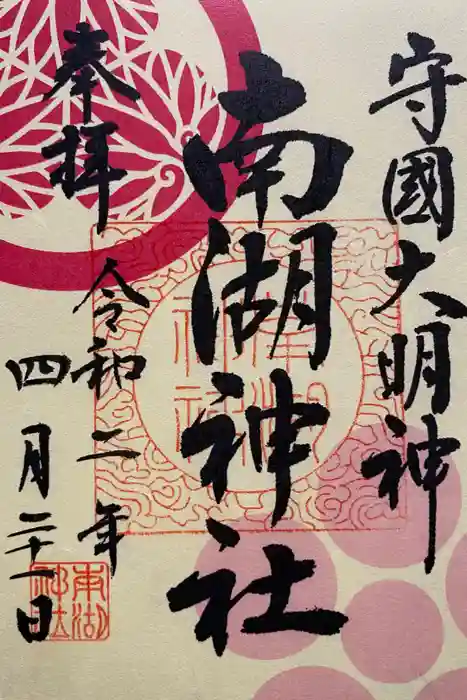 守國大明神
南湖神社
奉拝
令和二年
四月二十一日
南湖神社
南湖神社